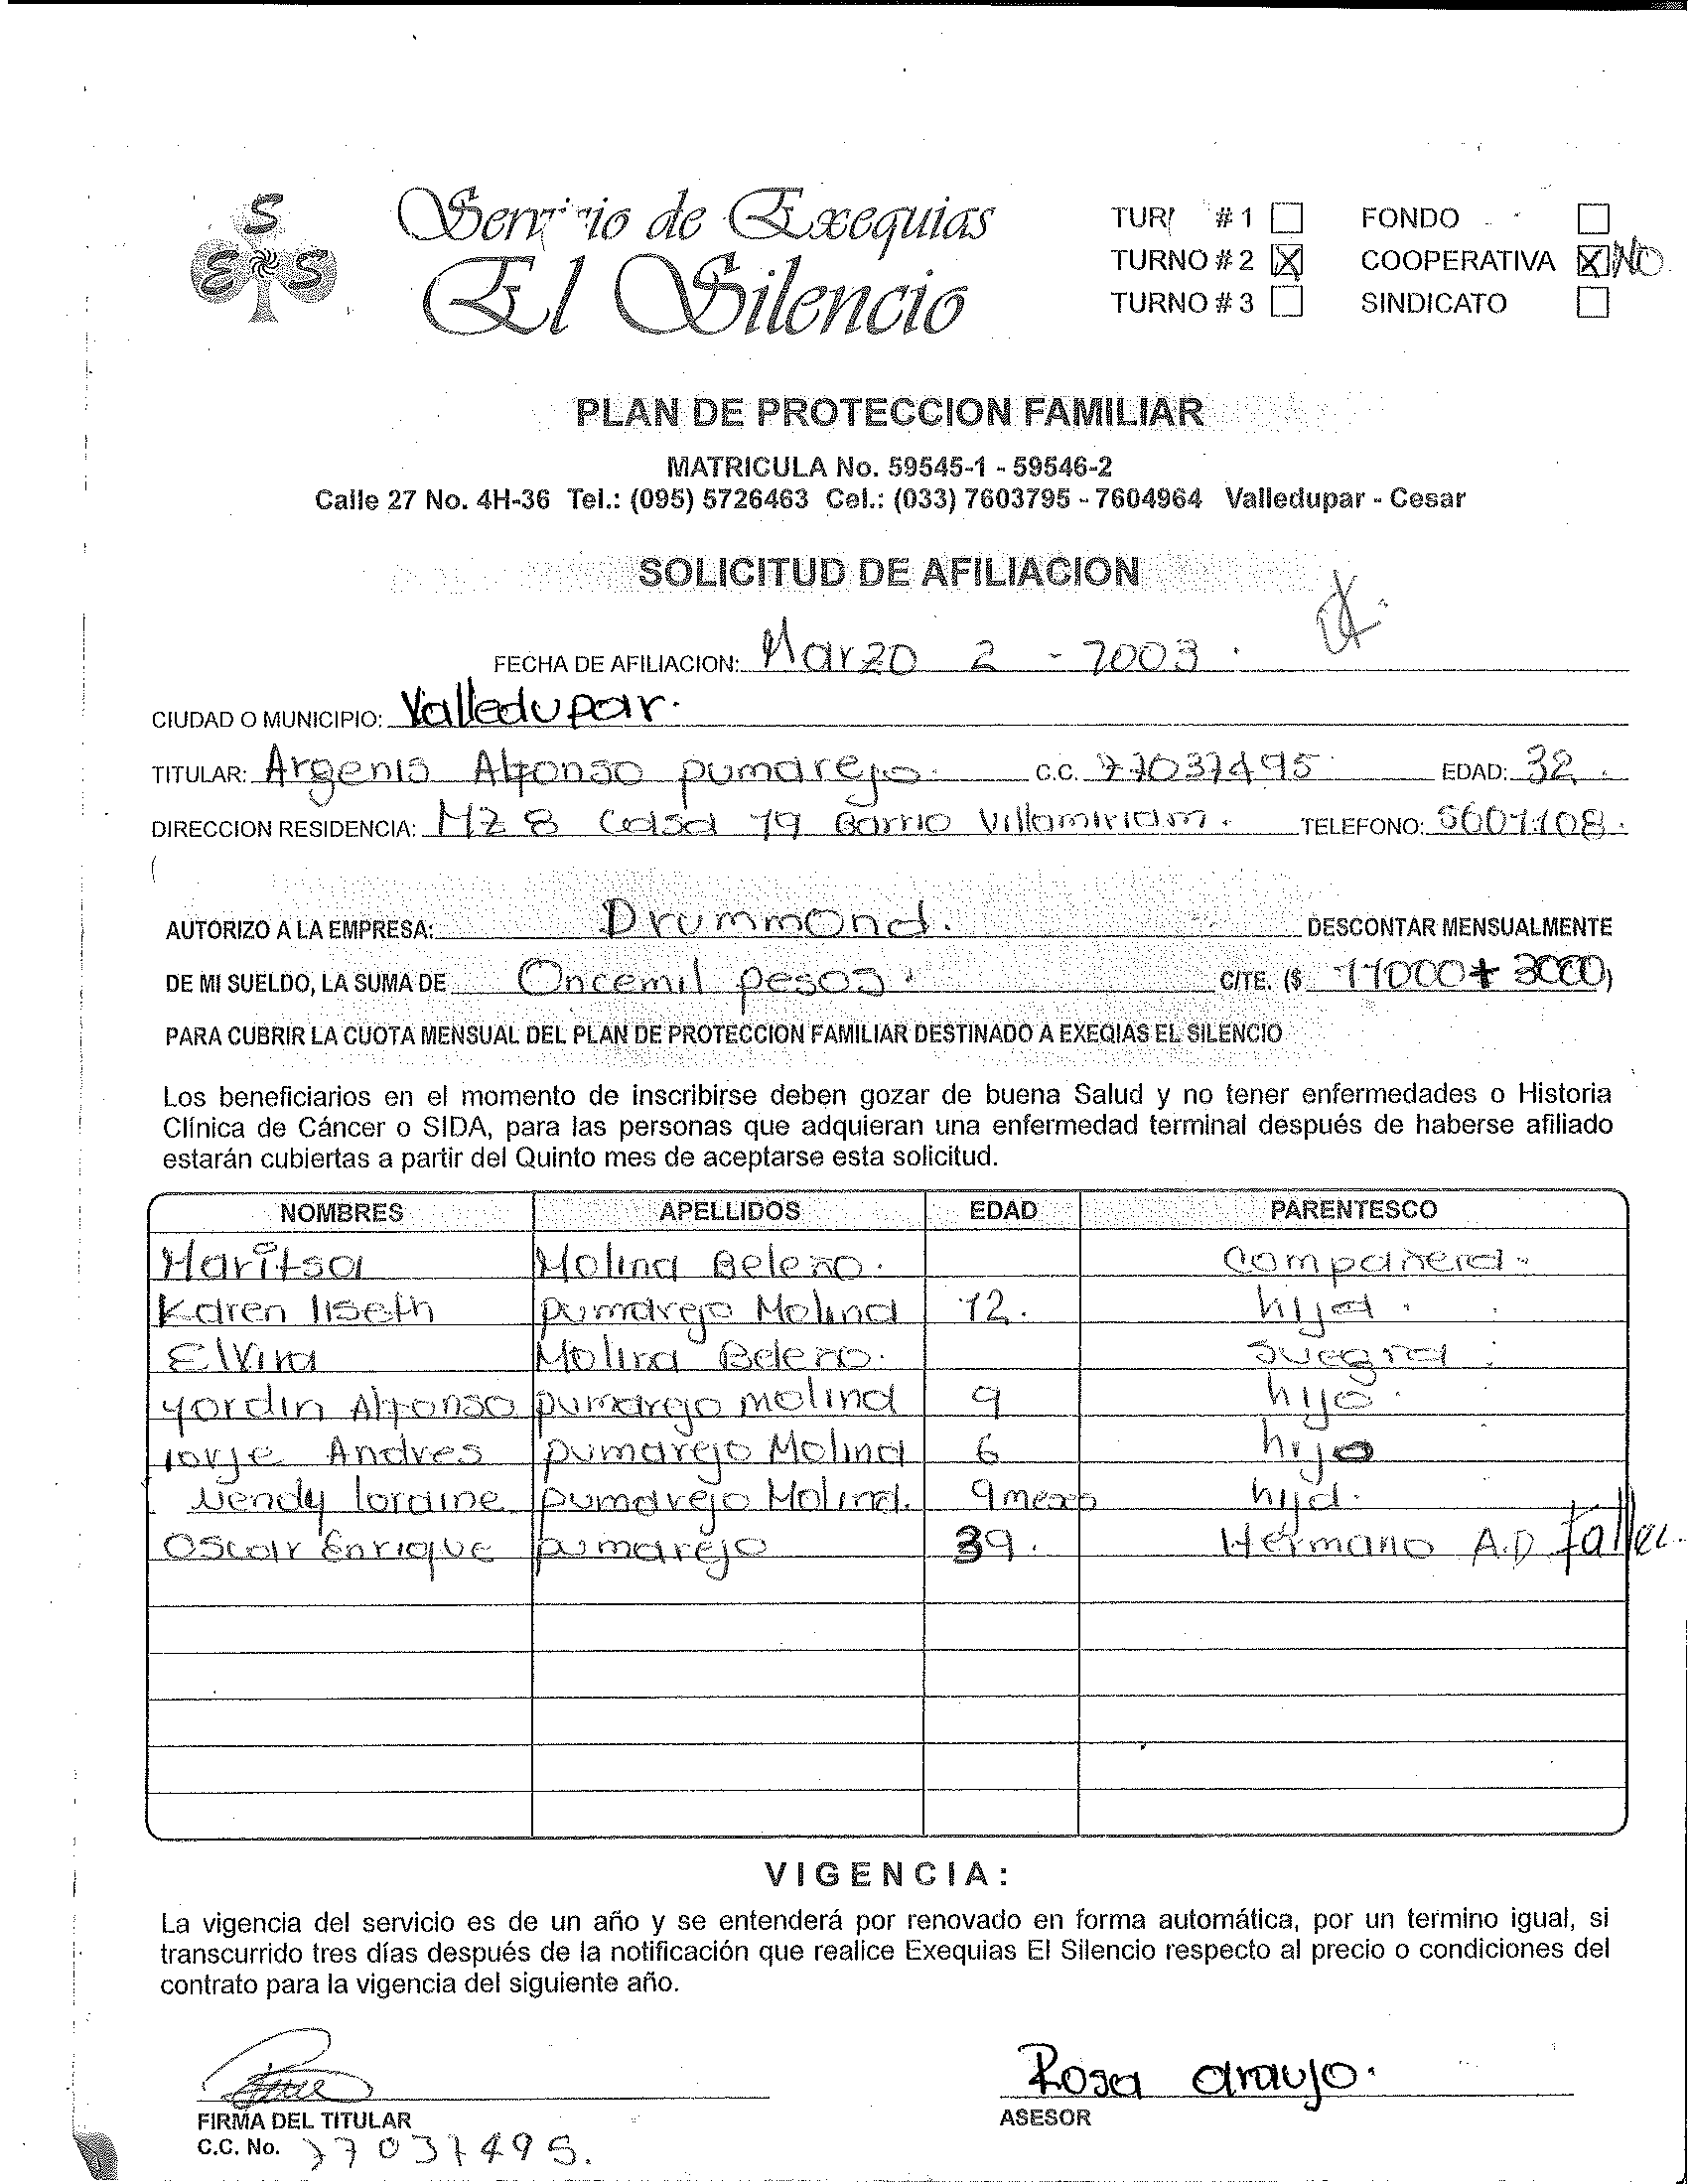 S E S
Servicio de Exequias
El Silencio
TUR # 1 FONDO
TURNO # 2 X COOPERATIVA X NO
TURNO # 3 SINDICATO
PLAN DE PROTECCION FAMILIAR
MATRICULA No. 59545-1 - 59546-2
Calle 27 No. 4H-36 Tel.: (095) 5726463 Cel.: (033) 7603795 - 7604964 Valledupar - Cesar
SOLICITUD DE AFILIACION
FECHA DE AFILIACION: Marzo 2 - 2003.
CIUDAD O MUNICIPIO: Valledupar.
TITULAR: Argenis Alfonso pumarejo. C.C. 77037495 EDAD: 32.
DIRECCION RESIDENCIA: MZ 8 Casa 19 Barrio Villamiriam. TELEFONO: 5601108.
AUTORIZO A LA EMPRESA: Drummond. DESCONTAR MENSUALMENTE
DE MI SUELDO, LA SUMA DE Oncemil pesos. C/TE. ($ 11000 + 3000)
PARA CUBRIR LA CUOTA MENSUAL DEL PLAN DE PROTECCION FAMILIAR DESTINADO A EXEQIAS EL SILENCIO
Los beneficiarios en el momento de inscribirse deben gozar de buena Salud y no tener enfermedades o Historia
Clínica de Cáncer o SIDA, para las personas que adquieran una enfermedad terminal después de haberse afiliado
estarán cubiertas a partir del Quinto mes de aceptarse esta solicitud.
NOMBRES APELLIDOS EDAD PARENTESCO
Maritsa Molina Beleño. Compañera.
Karen liseth pumarejo Molina 12. hija.
Elvira Molina Beleño. Suegra.
yordin Alfonso pumarejo molina 9 hijo.
Jorje Andres pumarejo Molina 6 hijo
Wendy loraine pumarejo Molina. 9 meses hija.
Oscar Enrique pumarejo 39. Hermano A.D.
VIGENCIA:
La vigencia del servicio es de un año y se entenderá por renovado en forma automática, por un termino igual, si
transcurrido tres días después de la notificación que realice Exequias El Silencio respecto al precio o condiciones del
contrato para la vigencia del siguiente año.
Rosa araujo.
FIRMA DEL TITULAR ASESOR
C.C. No. 77037495.